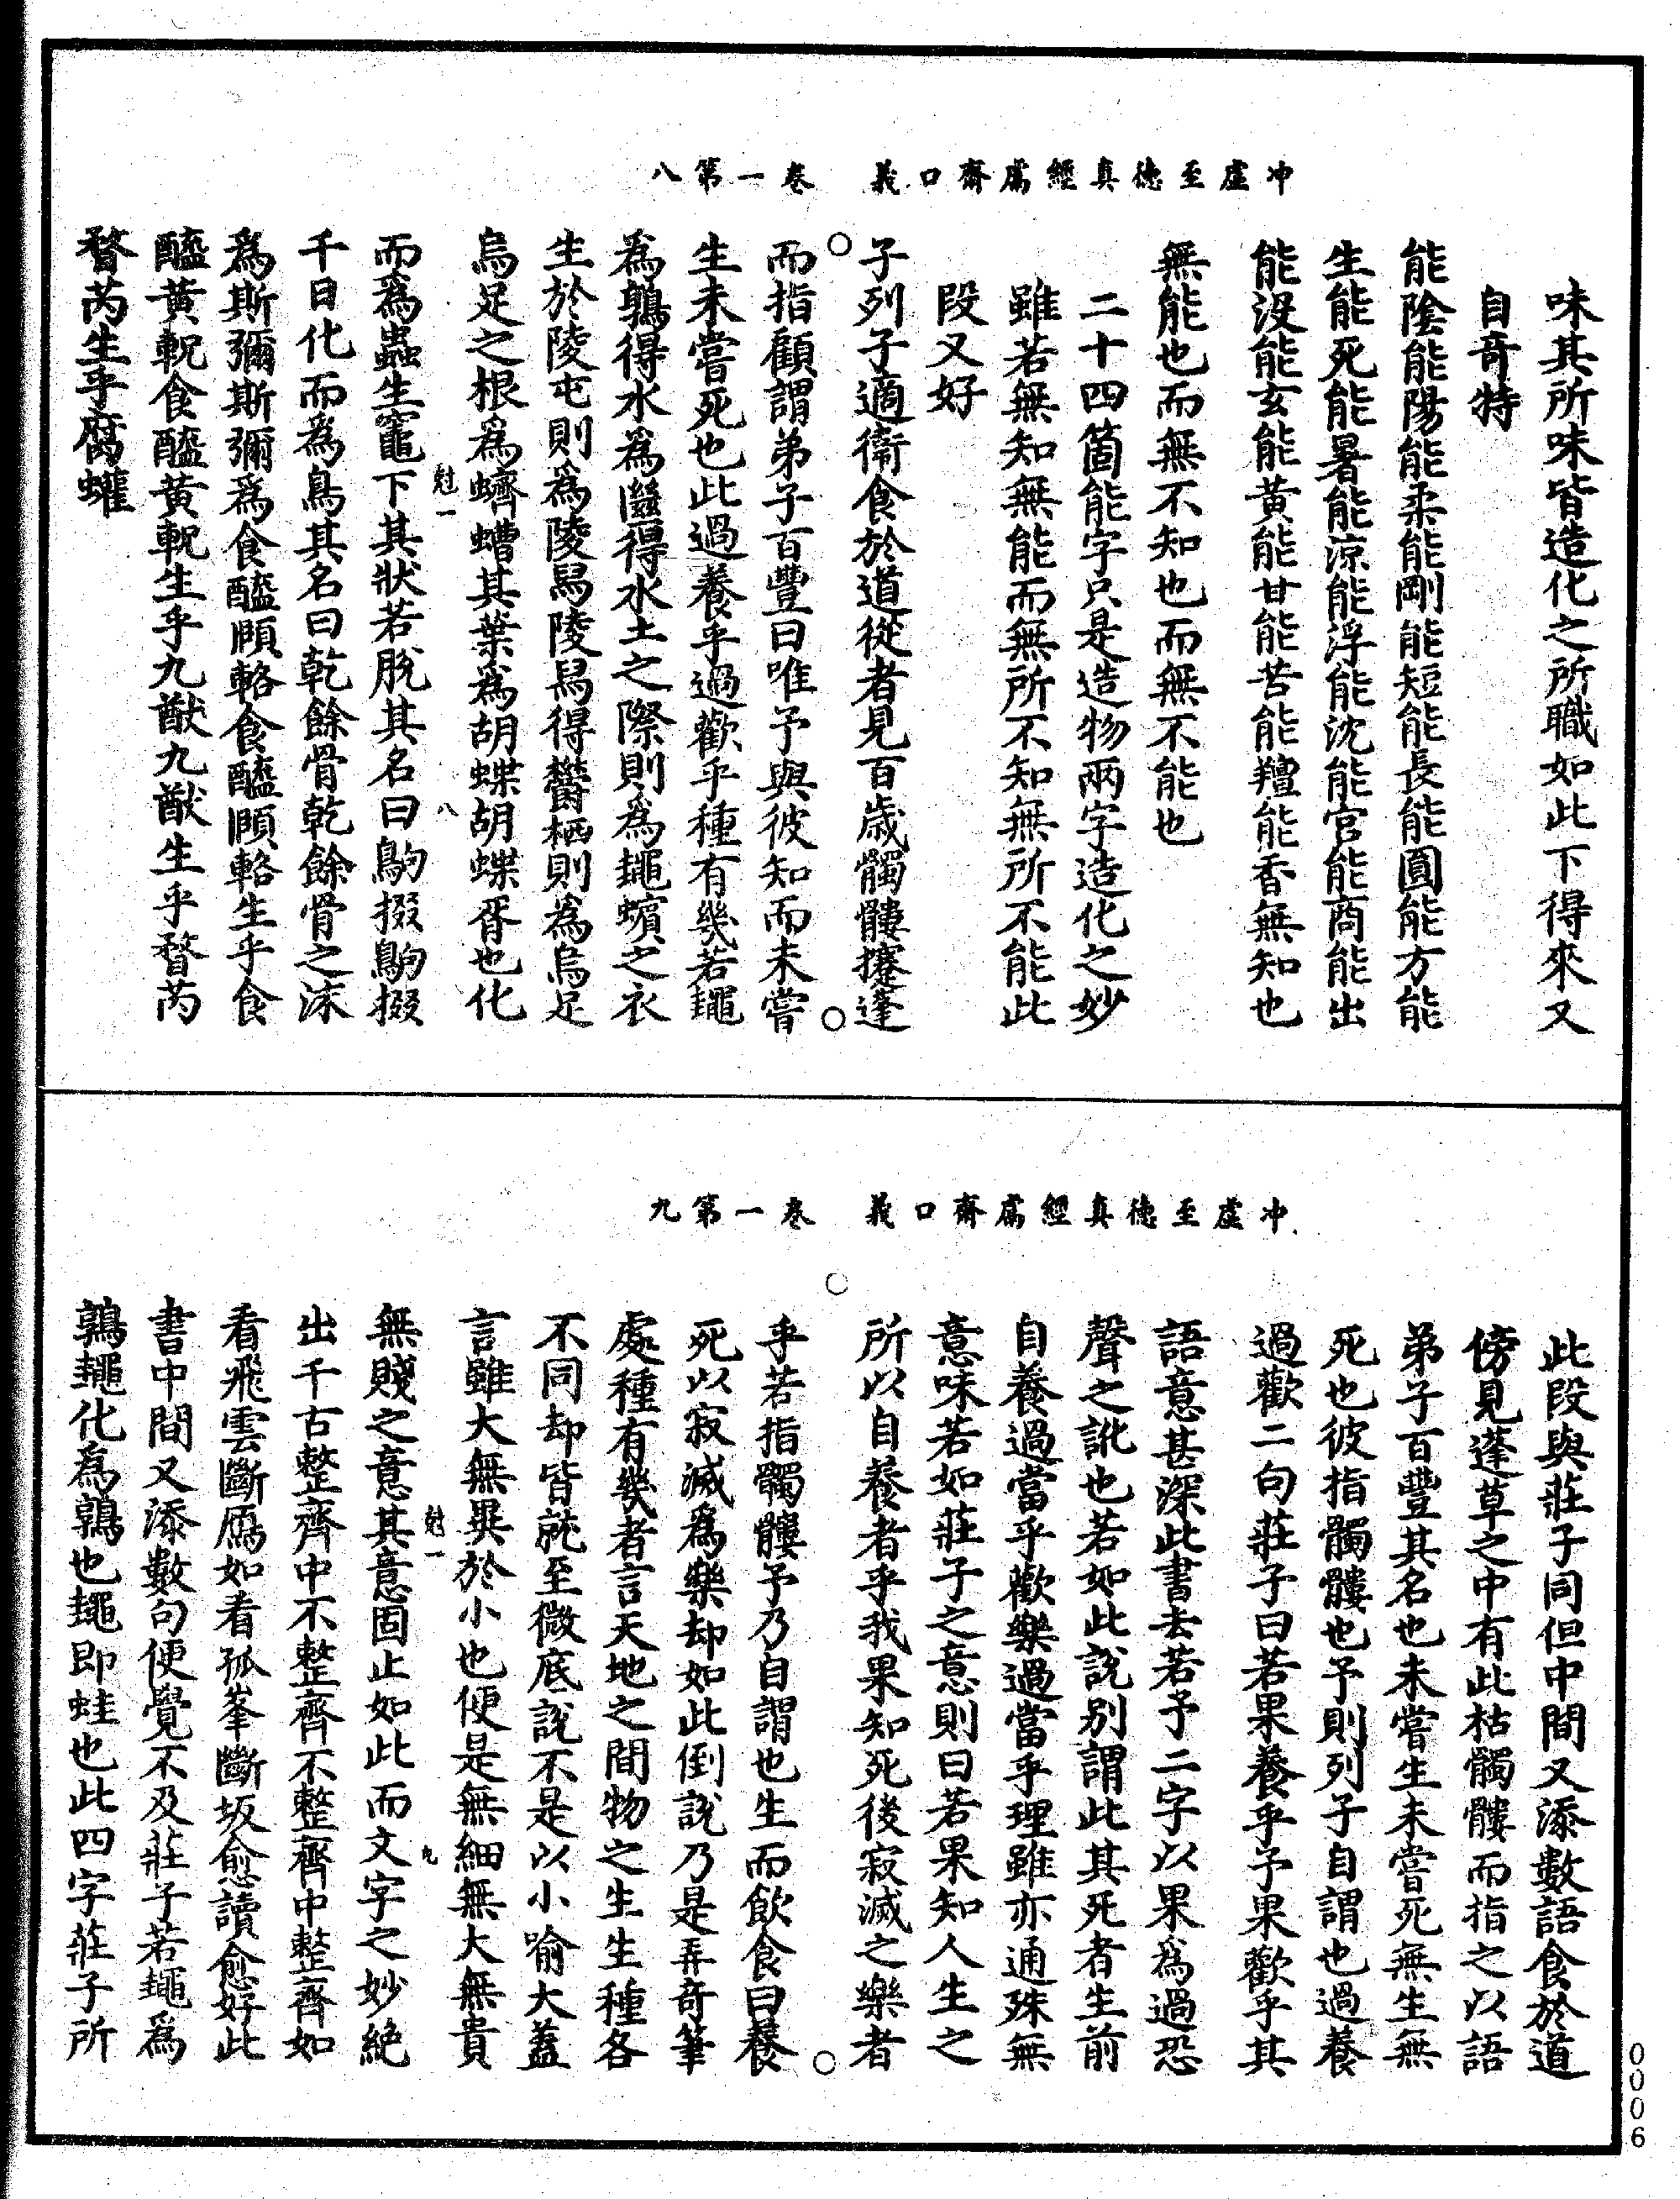 冲虛至德真經鬳齋口義　卷一第八
味其所味皆造化之所職如此下得來又
自奇特
能陰能陽能柔能剛能短能長能圓能方能
生能死能暑能涼能浮能沈能宮能商能出
能沒能玄能黃能甘能苦能羶能香無知也
無能也而無不知也而無不能也
二十四箇能字只是造物兩字造化之妙
雖若無知無能而無所不知無所不能此
段又好
子列子適衛食於道從者見百歲髑髏攓蓬
而指顧謂弟子百豐曰唯予與彼知而未嘗
生未嘗死也此過養乎過歡乎種有幾若䵷
為鶉得水為㡭得水土之際則為䵷蠙之衣
生於陵屯則為陵舄陵舄得鬱栖則為烏足
烏足之根為蠐螬其葉為胡蝶胡蝶胥也化
尅一
八
而為蟲生竈下其狀若脫其名曰鴝掇鴝掇
千日化而為鳥其名曰乾餘骨乾餘骨之沫
為斯彌斯彌為食醯頤輅食醯頤輅生乎食
醯黃軦食醯黃軦生乎九猷九猷生乎瞀芮
瞀芮生乎腐蠸
冲虛至德真經鬳齋口義　卷一第九
此段與莊子同但中間又添數語食於道
傍見蓬草之中有此枯髑髏而指之以語
弟子百豐其名也未嘗生未嘗死無生無
死也彼指髑髏也予則列子自謂也過養
過歡二句莊子曰若果養乎予果歡乎其
語意甚深此書去若予二字以果為過恐
聲之訛也若如此說別謂此其死者生前
自養過當乎歡樂過當乎理雖亦通殊無
意味若如莊子之意則曰若果知人生之
所以自養者乎我果知死後寂滅之樂者
乎若指髑髏予乃自謂也生而飲食曰養
死以寂滅為樂却如此倒說乃是弄奇筆
處種有幾者言天地之間物之生生種各
不同却皆就至微底說不是以小喻大蓋
言雖大無異於小也便是無細無大無貴
尅一
九
無賤之意其意固止如此而文字之妙絕
出千古整齊中不整齊不整齊中整齊如
看飛雲斷鴈如看孤峯斷坂愈讀愈好此
書中間又添數句便覺不及莊子若䵷為
鶉䵷化為鶉也䵷即蛙也此四字莊子所
0006